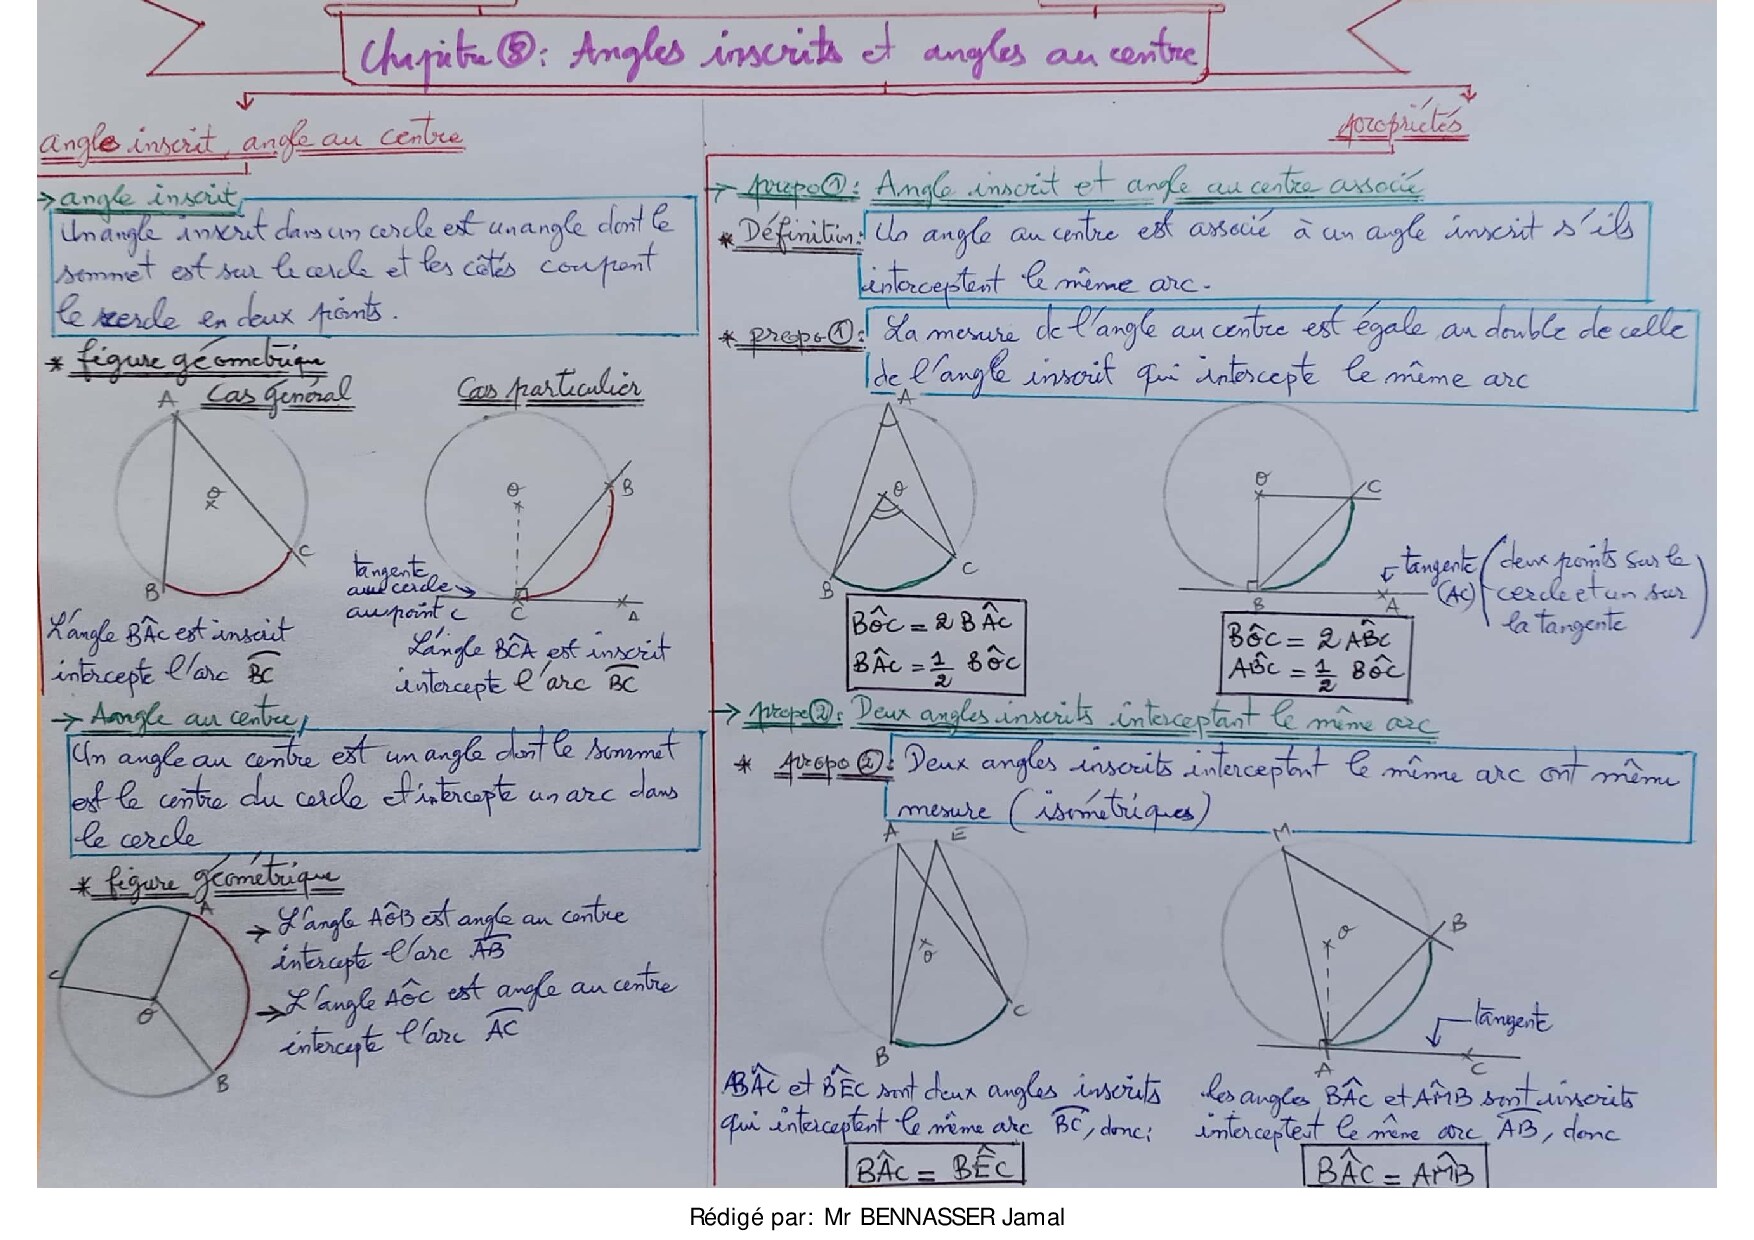 Chapitre ⑧: Angles inscrits et angles au centre
angle inscrit, angle au centre
→ angle inscrit
Un angle inscrit dans un cercle est un angle dont le
sommet est sur le cercle et les côtés coupent
le cercle en deux points.
* figure géometrique
Cas général
Cas particulier
A
O
B
C
O
B
tangente
au cercle
au point C
C
A
L'angle BÂC est inscrit
intercepte l'arc BC
L'angle BĈA est inscrit
intercepte l'arc BC
→ Angle au centre
Un angle au centre est un angle dont le sommet
est le centre du cercle et intercepte un arc dans
le cercle
* figure géométrique
A
C
O
B
→ L'angle AÔB est angle au centre
intercepte l'arc AB
→ L'angle AÔC est angle au centre
intercepte l'arc AC
propriétés
→ propo①: Angle inscrit et angle au centre associé
* Définition: Un angle au centre est associé à un angle inscrit s'ils
interceptent le même arc.
* propo①: La mesure de l'angle au centre est égale au double de celle
de l'angle inscrit qui intercepte le même arc
A
O
B
C
BÔC = 2 BÂC
BÂC = 1/2 BÔC
O
C
B
A
tangente
(AC)
(deux points sur le
cercle et un sur
la tangente)
BÔC = 2 AB̂C
AB̂C = 1/2 BÔC
→ propo②: Deux angles inscrits interceptant le même arc
* propo②: Deux angles inscrits interceptant le même arc ont même
mesure (isométriques)
A
E
O
B
C
M
O
B
A
C
tangente
BÂC et BÊC sont deux angles inscrits
qui interceptent le même arc BC, donc:
BÂC = BÊC
les angles BÂC et AM̂B sont inscrits
interceptent le même arc AB, donc
BÂC = AM̂B
Rédigé par: Mr BENNASSER Jamal